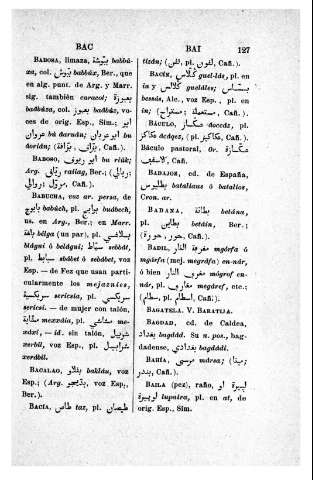 BAC
BAI 127
BABOSA, limaza, ببّوشة babbú-
xa, col. ببّوش babbúx, Ber., que
en alg. punt. de Arg. y Marr.
sig. también caracol;
badbúza, col. badbúz, vo-
ces de orig. Esp., Sim.; ابو
عريان bú dorián; ابو عريان bu
dorián;
Cañ.).
BABOSO, ابو ريوق bu riúk;
Arg. railag, Ber.;
Cañ.).
BABUCHA, esz ar. persa, de
بابوج pl. بوابج budbech,
us. en Arg., Ber.; en Marr.
بلغة bélga (un par), pl. بلاغي
blágui ó belágui; سبّاط sebbát,
pl. سبابط sbábet ó sebábet, voz
Esp. — de Fez que usan parti-
cularmente los mejaznies,
سركسية sericsía, pl. سركسي
sericsí. — de mujer con talón,
مخاية mexdiia, pl. مخاشي me-
xdxi, — id. sin talón, شربيل
xerbil, voz Esp., pl. شرابيل
xerdbil.
BACALAO, بقلاو bakláu, voz
Esp.; (Arg. voz Esp.,
Ber.).
BACÍA, طاس taz, pl. طيسان
tizdn; (لقن, pl. لقون, Cañ.).
BACÍN, كلاس guel-lás, pl. en
in y كلالس guelóles;
bessás, Alc., voz Esp., pl. en
in; (مستعملة, Cañ.).
BÁCULO, عكاز óocedz, pl.
عكاكز ócdqez, (عكاكيز, pl. Cañ.).
Báculo pastoral, Gr. عكازة
الاسقف, Cañ.
BADAJOZ, ed. de España,
بطليوس batalíaus ó batalíos,
Cron. ar.
BADANA, بطانة betána,
pl. بطاين betáin, Ber.;
(حورة, pl. حور, Cañ.).
BADIL, مغرفة النار mgórfa ó
mgárfa (mej. megráfa) en-nár,
ó bien مغرف النار mógref en-
nár, pl. مغارف megáref etc.;
(اسطام, pl. سطام, Cañ.).
BAGATELA. V. BARATIJA.
BAGDAD, ed. de Caldea,
بغداد bagdád. Su n. pos., bag-
dadense, بغدادي bagdádí.
BAHÍA, مرسى mársa; (مينا;
بندر, Cañ.).
BAILA (pez), raño, لوبيرة ó
لوبيرة lupaira, pl. en at, de
orig. Esp., Sim.